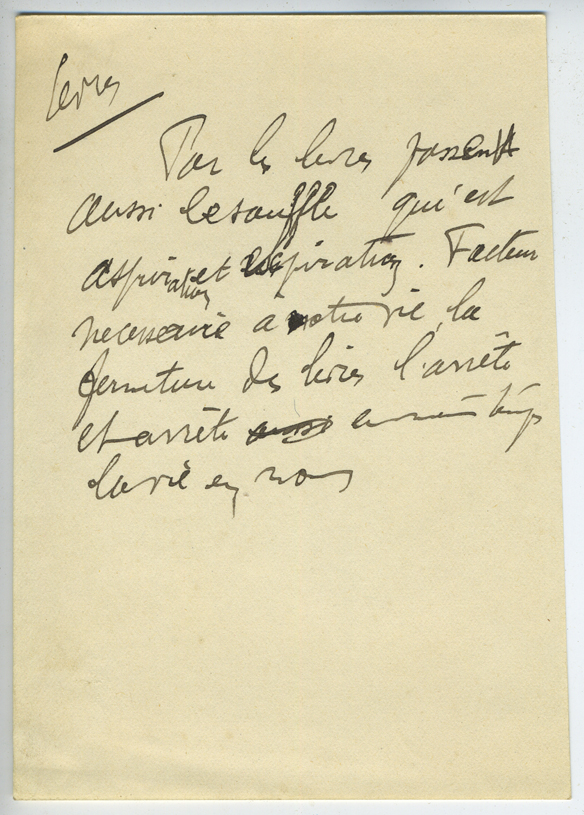 Levres
Par les levres passent
aussi le souffle qui est
aspiration et expiration. Facteur
necessaire à notre vie, la
fermeture des lèvres l'arrête
et arrête aussi en même temps
la vie en nous